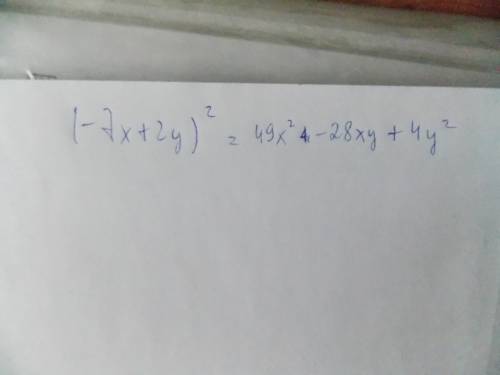 (-7x+2y)² = 49x² -28xy + 4y²